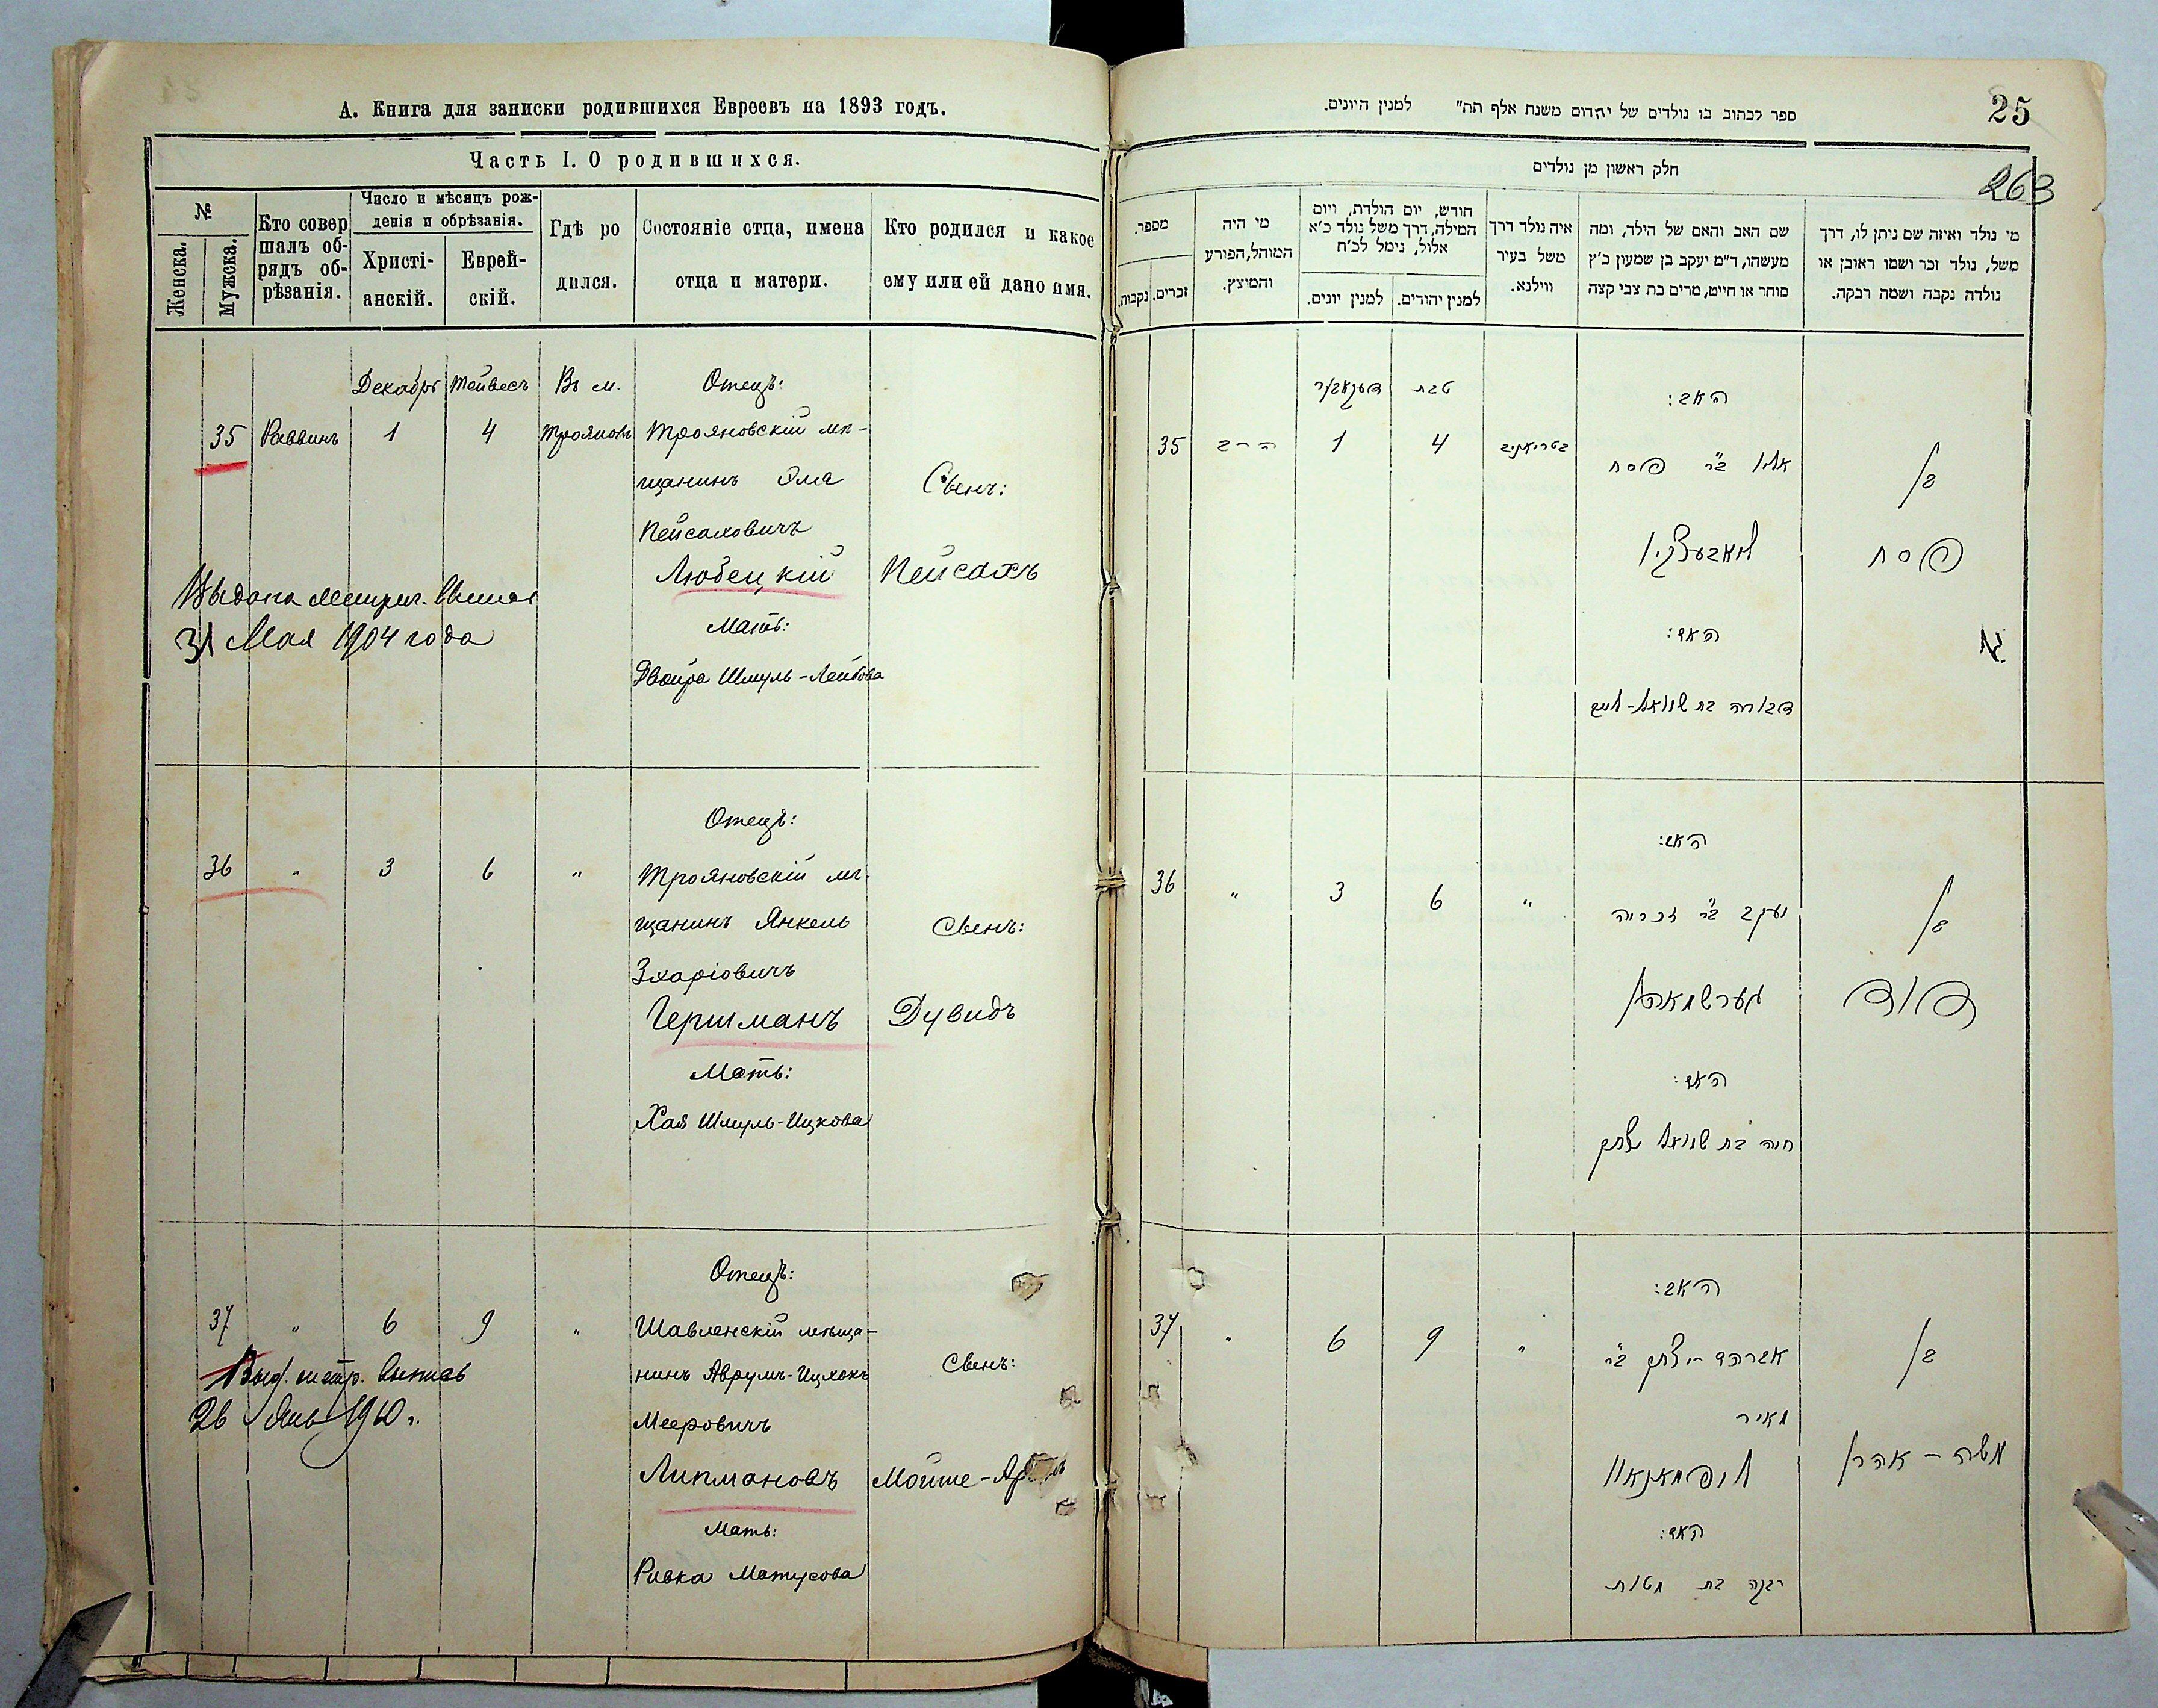 А. Книга для записки родившихся Евреевъ на 1893 годъ.
Часть I. О родившихся.
№
Женска.
Мужска.
Кто совер
шалъ об-
рядъ об-
рѣзанія.
Число и мѣсяцъ рож-
денія и обрѣзанія.
Христі-
анскій.
Еврей-
скій.
Гдѣ ро
дился.
Состояніе отца, имена
отца и матери.
Кто родился и какое
ему или ей дано имя.
Декабрь Тейвесъ Въ м. Отецъ:
35 Раввинъ 1 4 Трояновъ Трояновскій мѣ-
щанинъ Эля
Сынъ:
Пейсаховичъ
Любецкій
Пейсахъ
Выдана метрич. выпись
31 Мая 1904 года
Мать:
Двойра Шмуль-Лейбова
Отецъ:
36 " 3 6 " Трояновскій мѣ-
щанинъ Янкель
Сынъ:
Зхаріовичъ
Гершманъ
Дувидъ
Мать:
Хая Шмуль-Ицкова
Отецъ:
37 " 6 9 " Шавленскій мѣща-
нинъ Аврумъ-Ицхокъ
Сынъ:
Выд. метр. выпись
26 Янв 1910 г.
Мееровичъ
Липмановъ
Мойше-
Мать:
Ривка Матусова
ספר לכתוב בו נולדים של יהדום משנת אלף תת" למנין היונים.
25
263
חלק ראשון מן נולדים
מספר.
זכרים.
נקבות.
מי היה
המוהל,הפורע
והמוצץ.
חודש, יום הולדת, ויום
המילה, דרך משל נולד כ'א
אלול, נימל לכ'ח
למנין יונים.
למנין יהודים.
איה נולד דרך
משל בעיר
ווילנא.
שם האב והאם של הילד, ומה
מעשהו, ד"מ יעקב בן שמעון כ'ץ
סוחר או חייט, מרים בת צבי קצה
מי נולד ואיזה שם ניתן לו, דרך
משל, נולד זכר ושמו ראובן או
נולדה נקבה ושמה רבקה.
דעקאבער טבת
האב:
35 הרב 1 4 בטריאניב
אליו ב"ר פסח
בן
לובעצקי
פסח
האם:
דבורה בת שמואל-לייב
האב:
36 " 3 6 "
יעקב ב"ר זכריה
בן
גערשמאן
דוד
האם:
חיה בת שמואל יצחק
האב:
37 " 6 9 "
אברהם יצחק ב"ר
בן
מאיר
ליפמאנאוו
משה - אהרן
האם:
רבקה בת מטות